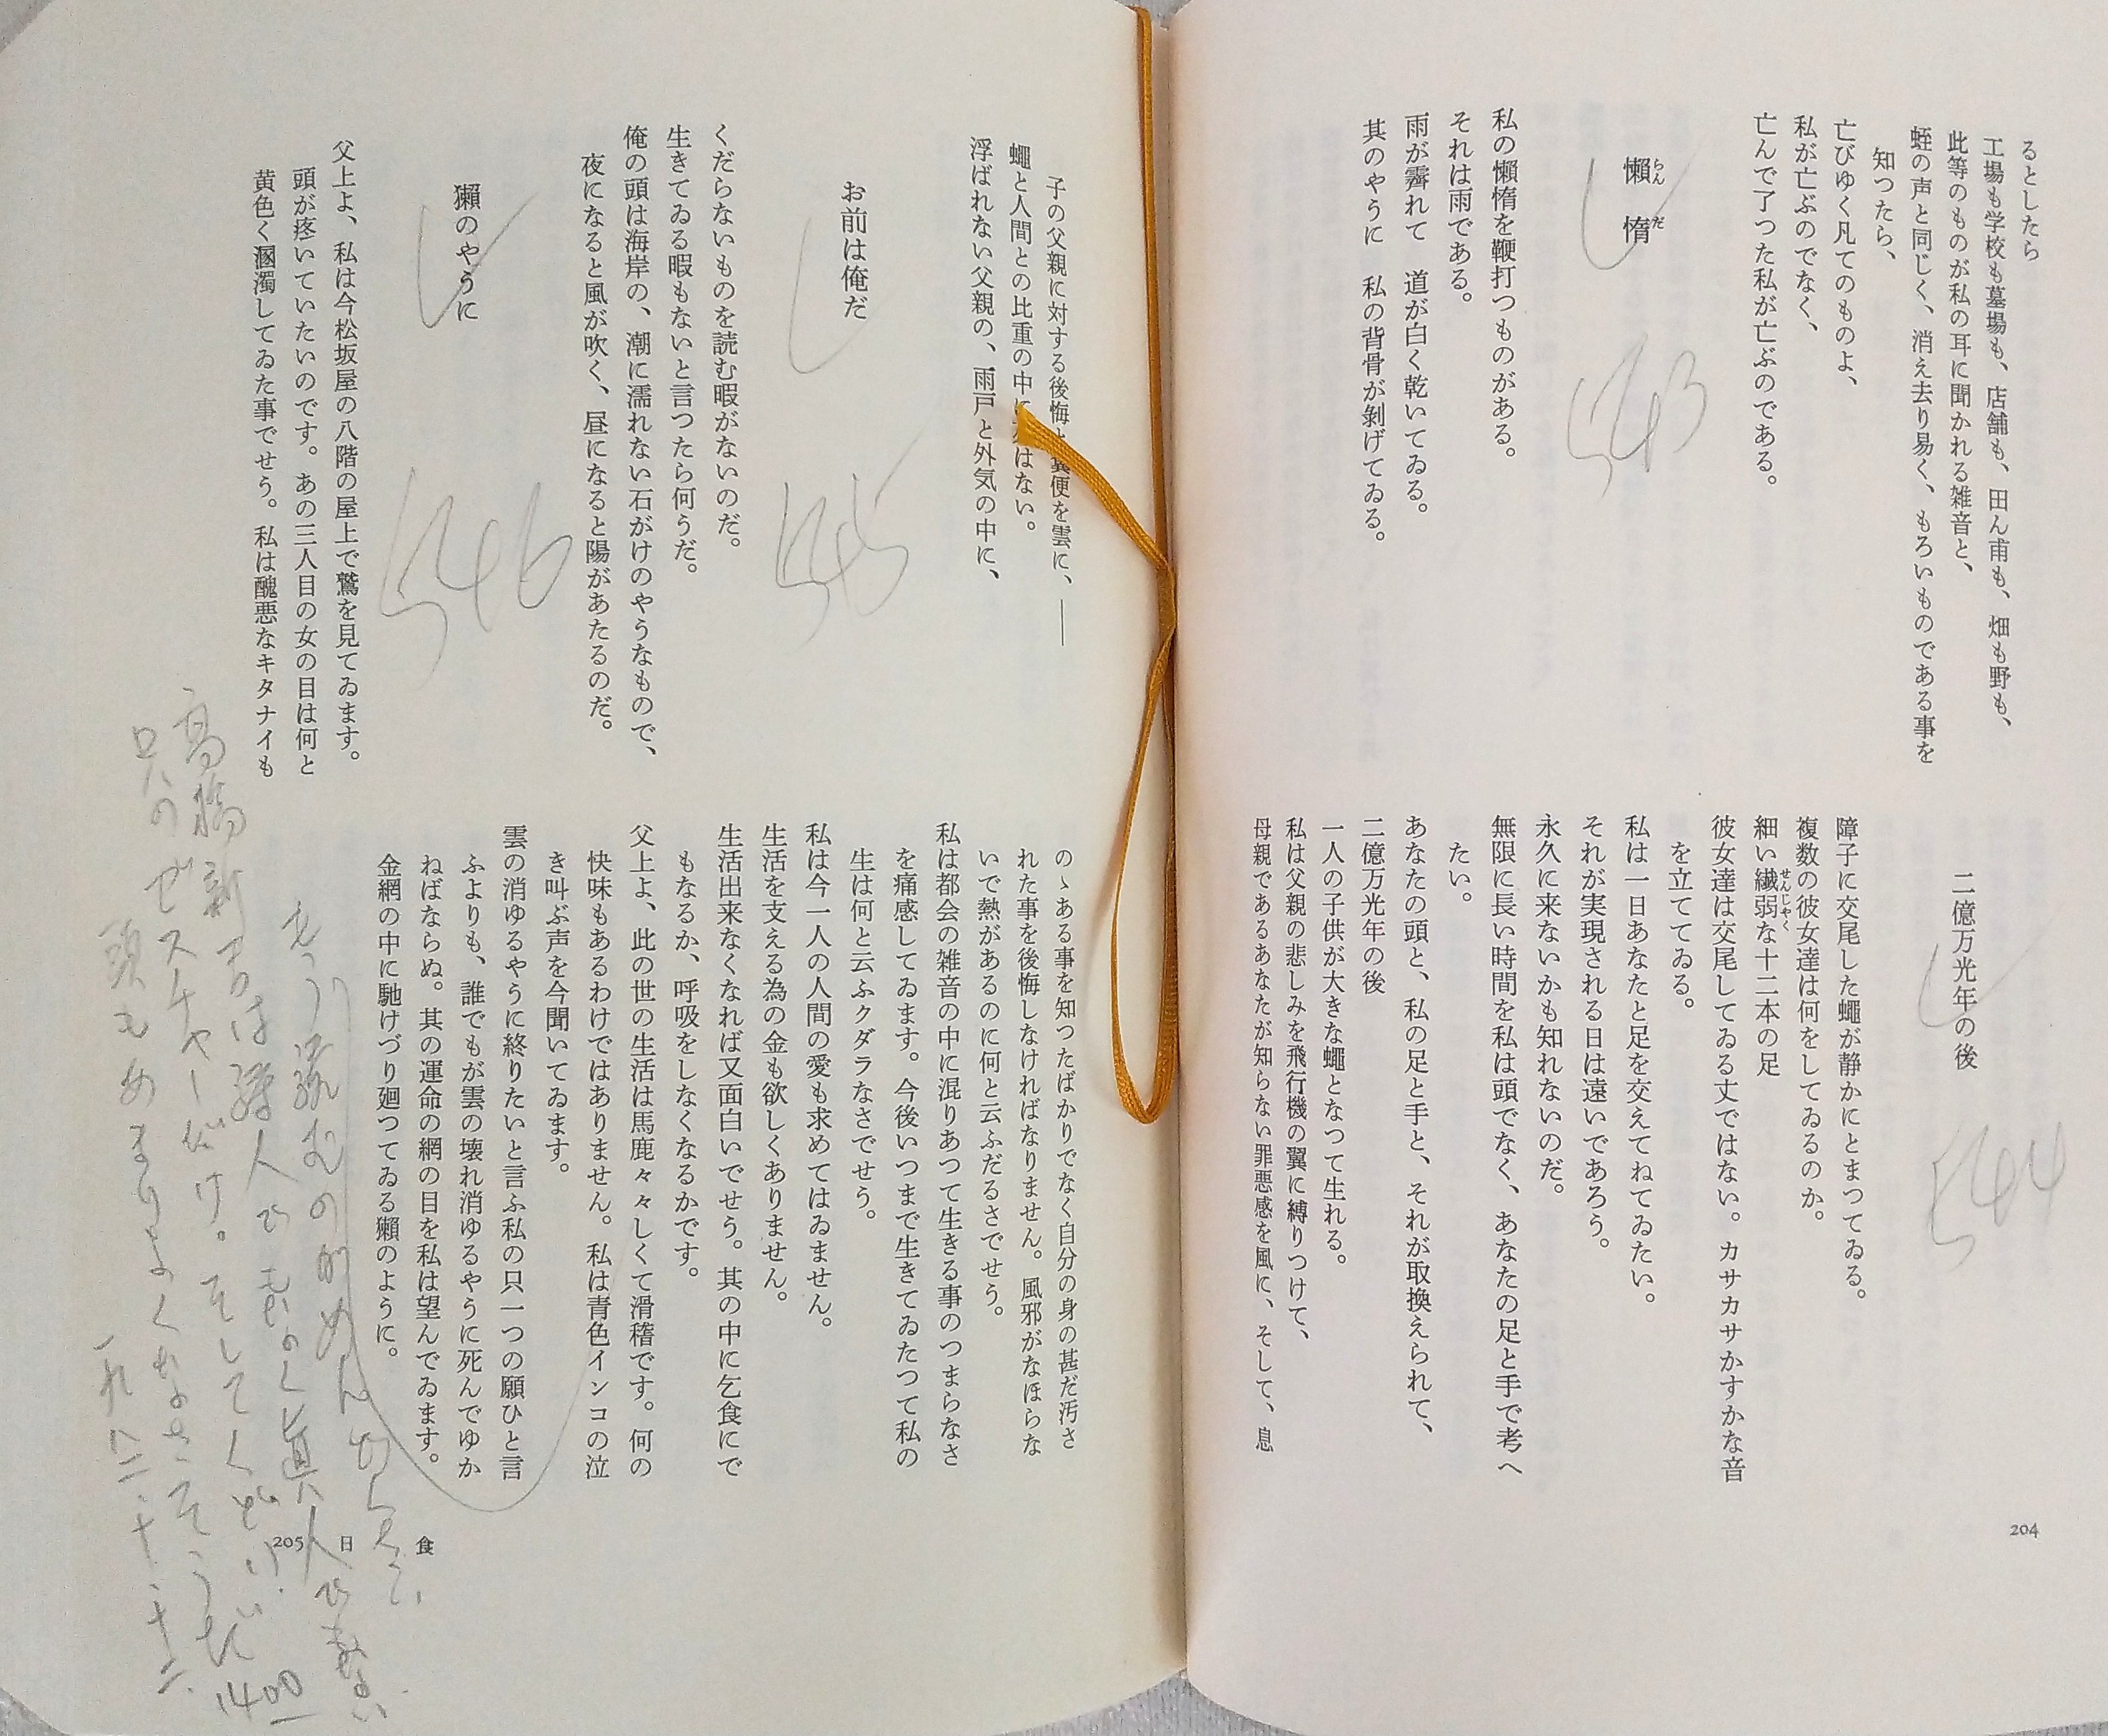 るとしたら
工場も学校も墓場も、店舗も、田ん甫も、畑も野も、
此等のものが私の耳に聞かれる雑音と、
蛭の声と同じく、消え去り易く、もろいものである事を
知つたら、
亡びゆく凡てのものよ、
私が亡ぶのでなく、
亡んで了つた私が亡ぶのである。
懶惰
らんだ
543
私の懶惰を鞭打つものがある。
それは雨である。
雨が霽れて 道が白く乾いてゐる。
其のやうに 私の背骨が剝げてゐる。
二億万光年の後
544
障子に交尾した蠅が静かにとまつてゐる。
複数の彼女達は何をしてゐるのか。
細い繊弱な十二本の足
せんじやく
彼女達は交尾してゐる丈ではない。カサカサかすかな音
を立ててゐる。
私は一日あなたと足を交えてねてゐたい。
それが実現される日は遠いであろう。
永久に来ないかも知れないのだ。
無限に長い時間を私は頭でなく、あなたの足と手で考へ
たい。
あなたの頭と、私の足と手と、それが取換えられて、
二億万光年の後
一人の子供が大きな蠅となつて生れる。
私は父親の悲しみを飛行機の翼に縛りつけて、
母親であるあなたが知らない罪悪感を風に、そして、息
204
子の父親に対する後悔と糞便を雲に、――
蠅と人間との比重の中にはない。
浮ばれない父親の、雨戸と外気の中に、
お前は俺だ
545
くだらないものを読む暇がないのだ。
生きてゐる暇もないと言つたら何うだ。
俺の頭は海岸の、潮に濡れない石がけのやうなもので、
夜になると風が吹く、昼になると陽があたるのだ。
獺のやうに
546
父上よ、私は今松坂屋の八階の屋上で鷲を見てゐます。
頭が疼いていたいのです。あの三人目の女の目は何と
黄色く溷濁してゐた事でせう。私は醜悪なキタナイも
のゝある事を知つたばかりでなく自分の身の甚だ汚さ
れた事を後悔しなければなりません。風邪がなほらな
いで熱があるのに何と云ふだるさでせう。
私は都会の雑音の中に混りあつて生きる事のつまらなさ
を痛感してゐます。今後いつまで生きてゐたつて私の
生は何と云ふクダラなさでせう。
私は今一人の人間の愛も求めてはゐません。
生活を支える為の金も欲しくありません。
生活出来なくなれば又面白いでせう。其の中に乞食にで
もなるか、呼吸をしなくなるかです。
父上よ、此の世の生活は馬鹿々々しくて滑稽です。何の
快味もあるわけではありません。私は青色インコの泣
き叫ぶ声を今聞いてゐます。
雲の消ゆるやうに終りたいと言ふ私の只一つの願ひと言
ふよりも、誰でもが雲の壊れ消ゆるやうに死んでゆか
ねばならぬ。其の運命の網の目を私は望んでゐます。
金網の中に馳けづり廻つてゐる獺のように。
もう読むのがめんどくさい
高橋新吉は詩人でもなく真人でもない
只のゼスチャーだけ。そしてくどい。
頭もあまりよくなさそうだ
一九八二・十・十二
1400
205 日食